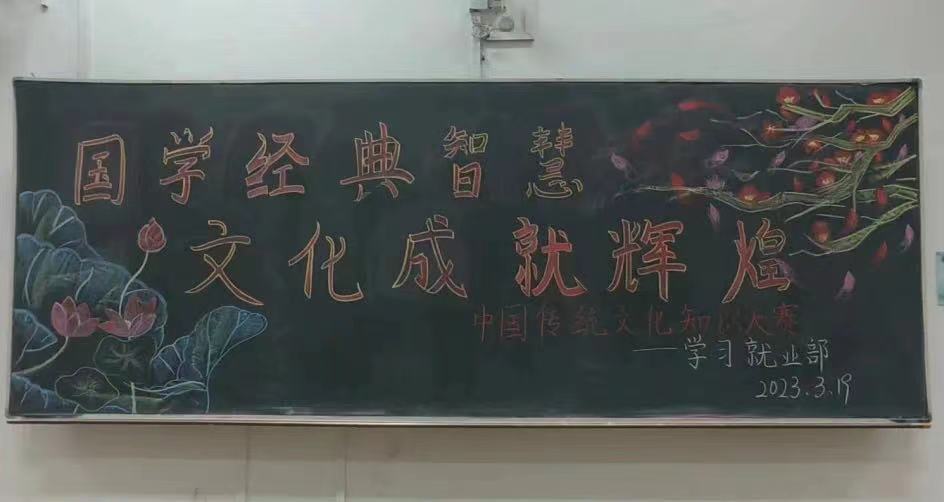 国学经典智慧
文化成就辉煌
中国传统文化知识大赛
——学习就业部
2023.3.19